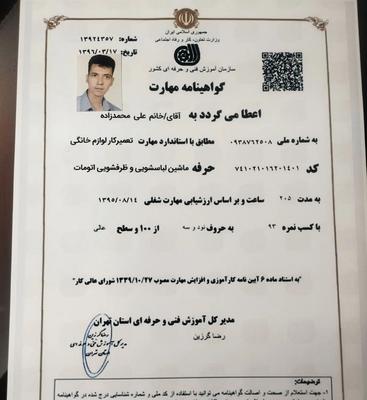 جمهوری اسلامی ایران
وزارت تعاون، کار و رفاه اجتماعی
شماره: ۱۳۹۲۴۳۵۷
تاریخ: ۱۳۹۶/۰۳/۱۷
سازمان آموزش فنی و حرفه ای کشور
گواهینامه مهارت
اعطا می گردد به آقای/خانم علی محمدزاده
به شماره ملی ۰۹۳۸۷۶۲۵۰۸ مطابق با استاندارد مهارت تعمیرکار لوازم خانگی
کد ۷۴۱۰۲۱۰۱۶۲۰۱۴۰۱ حرفه ماشین لباسشویی و ظرفشویی اتومات
به مدت ۲۰۵ ساعت و بر اساس ارزشیابی مهارت شغلی ۱۳۹۵/۰۸/۱۴
با کسب نمره ۹۳ به حروف نود و سه از ۱۰۰ و سطح عالی
"به استناد ماده ۶ آیین نامه کارآموزی و افزایش مهارت مصوب ۱۳۳۹/۱۰/۲۷ شورای عالی کار"
مدیر کل آموزش فنی و حرفه ای استان تهران
رضا گرزین
رضا گرزین
مدیر کل آموزش فنی و حرفه ای
استان تهران
توضیحات:
۱- جهت استعلام از صحت و اصالت گواهینامه می توانید با استفاده از کد ملی و شماره شناسایی درج شده در گواهینامه